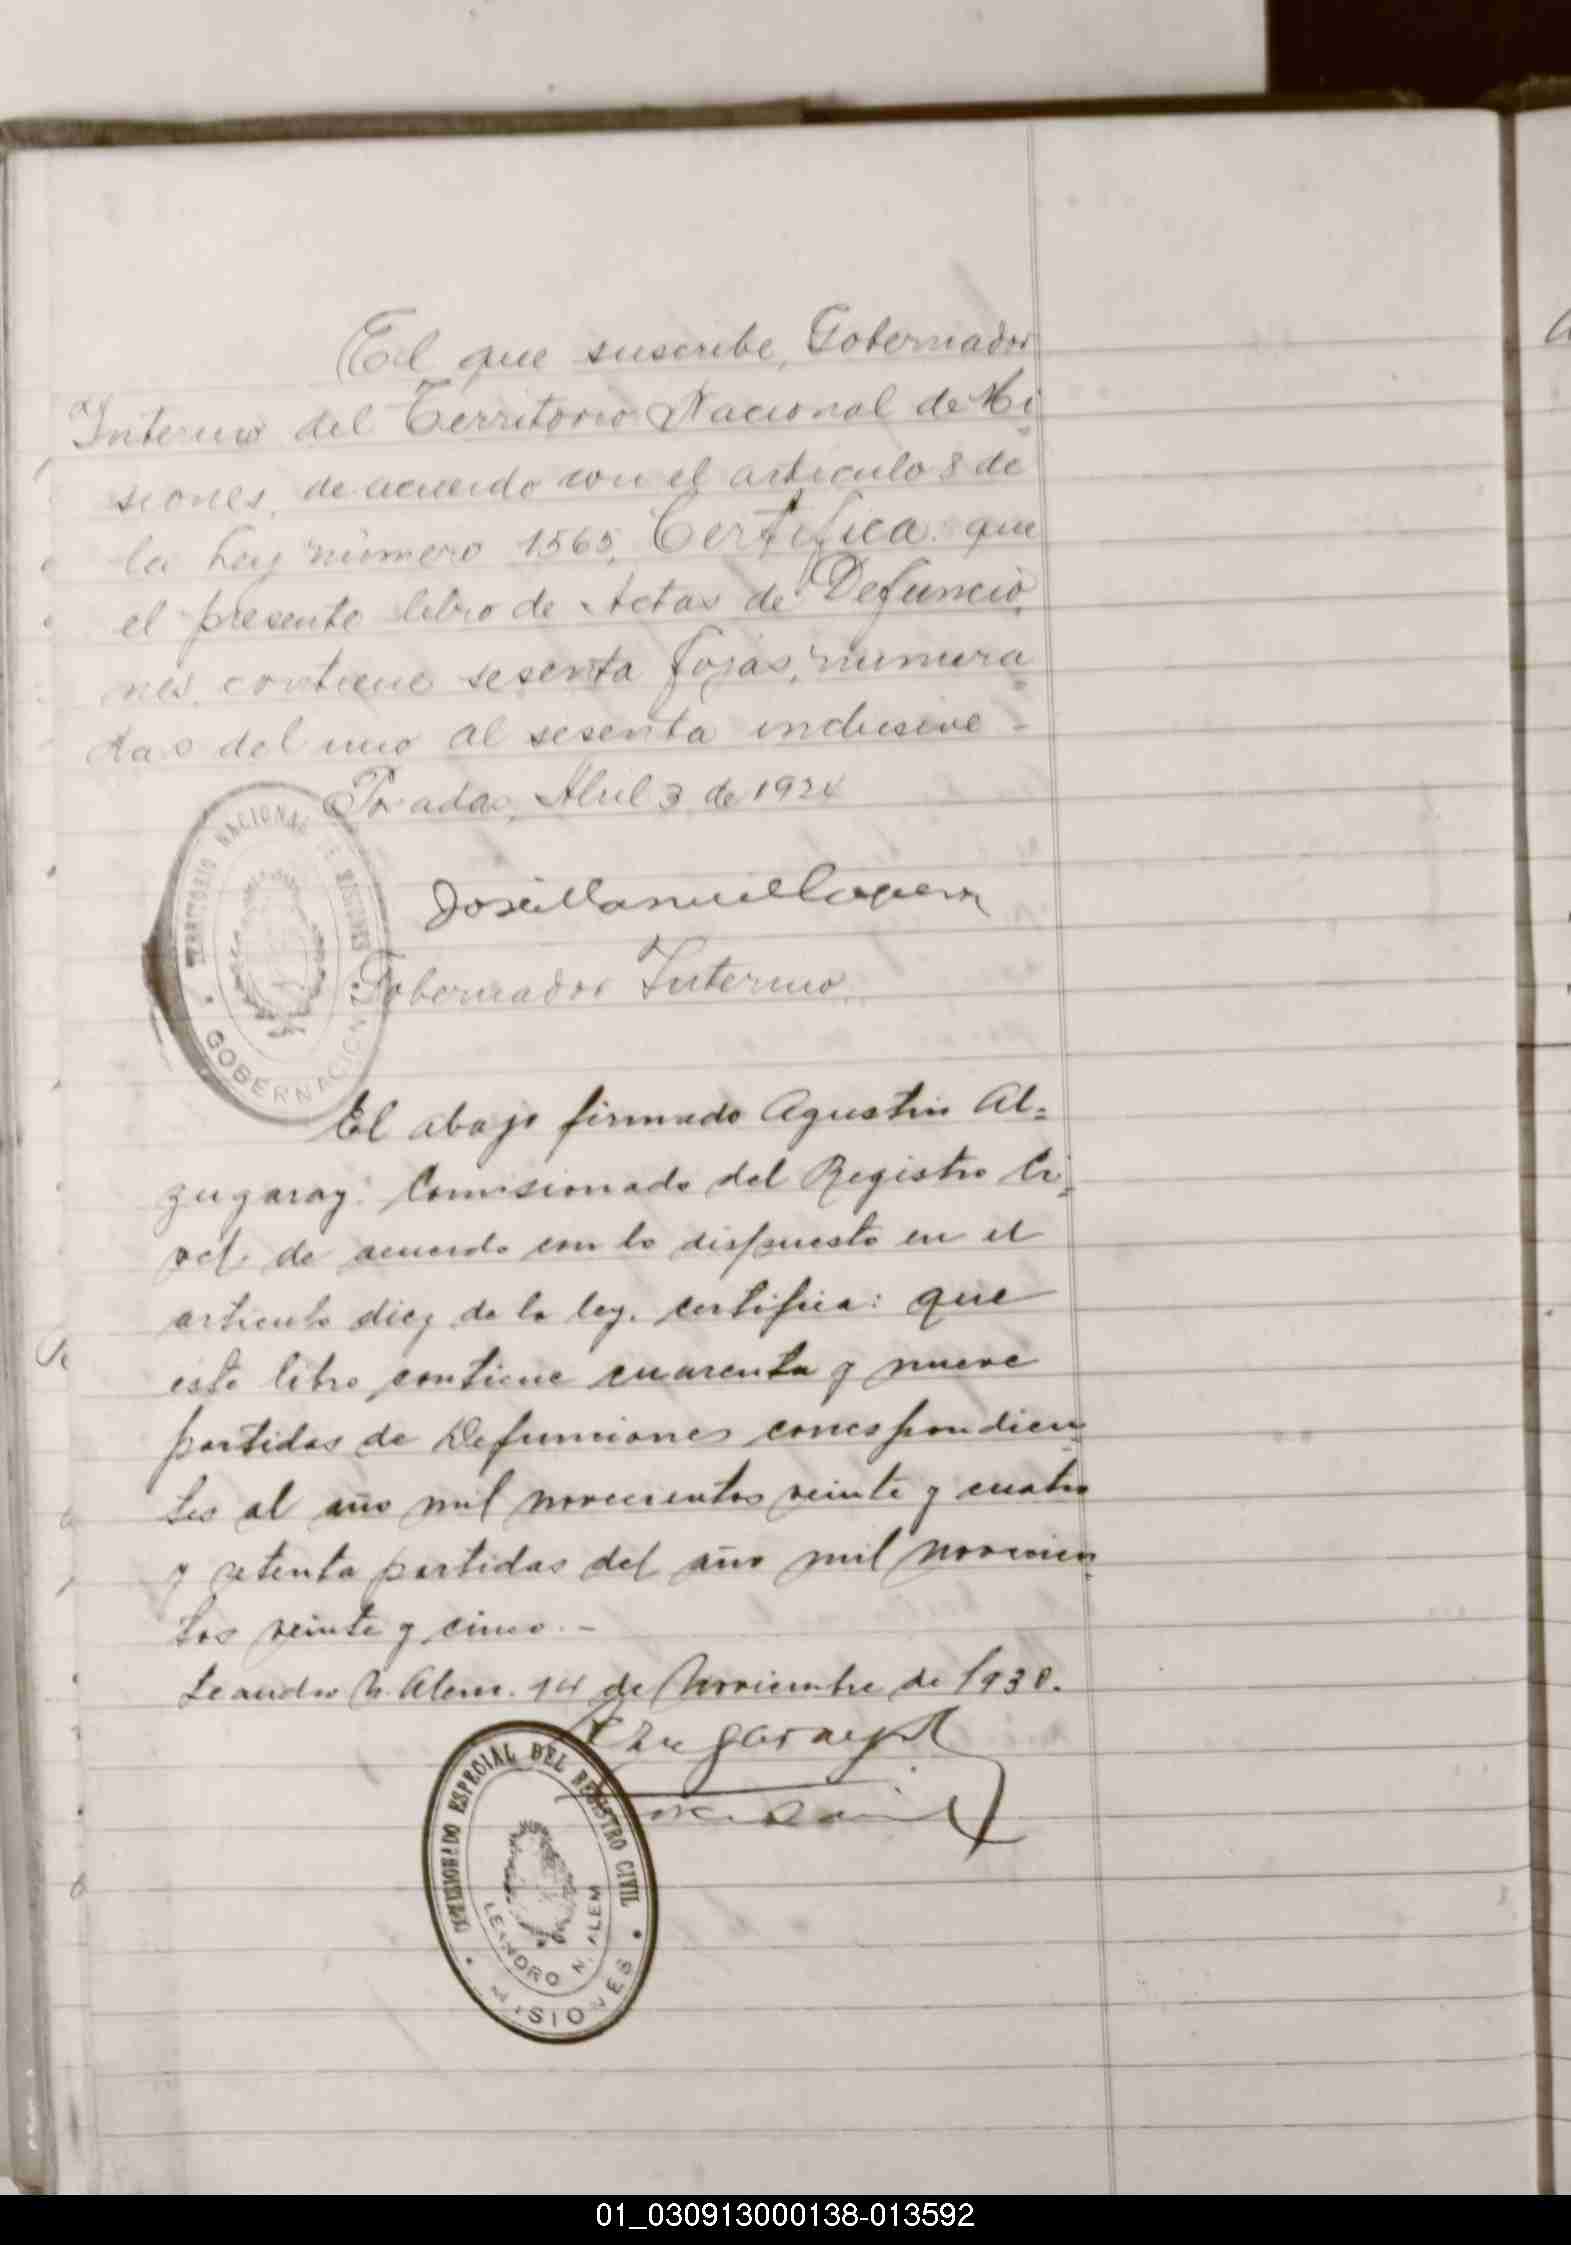 El que suscribe, Gobernador
Interino del Territorio Nacional de Mi
siones, de acuerdo con el articulo 8 de
la Ley número 1565, Certifica que
el presente libro de Actas de Defuncio
nes, contiene sesenta fojas, numera
das del uno al sesenta inclusive -
Posadas, Abril 3 de 1924
TERRITORIO NACIONAL DE MISIONES
GOBERNACION
José Manuel
Gobernador Interino
El abajo firmado Agustin Al=
zugaray: Comisionado del Registro Ci=
vil. de acuerdo con lo dispuesto en el
articulo diez de la ley. certifica: que
este libro contiene cuarenta y nueve
partidas de Defunciones correspondien
tes al año mil novecientos veinte y cuatro
y setenta partidas del año mil novecien
tos veinte y cinco. -
Leandro N. Alem. 14 de Noviembre de 1930.
Azugaray
COMISIONADO ESPECIAL DEL REGISTRO CIVIL
LEANDRO N. ALEM
MISIONES
01_030913000138-013592